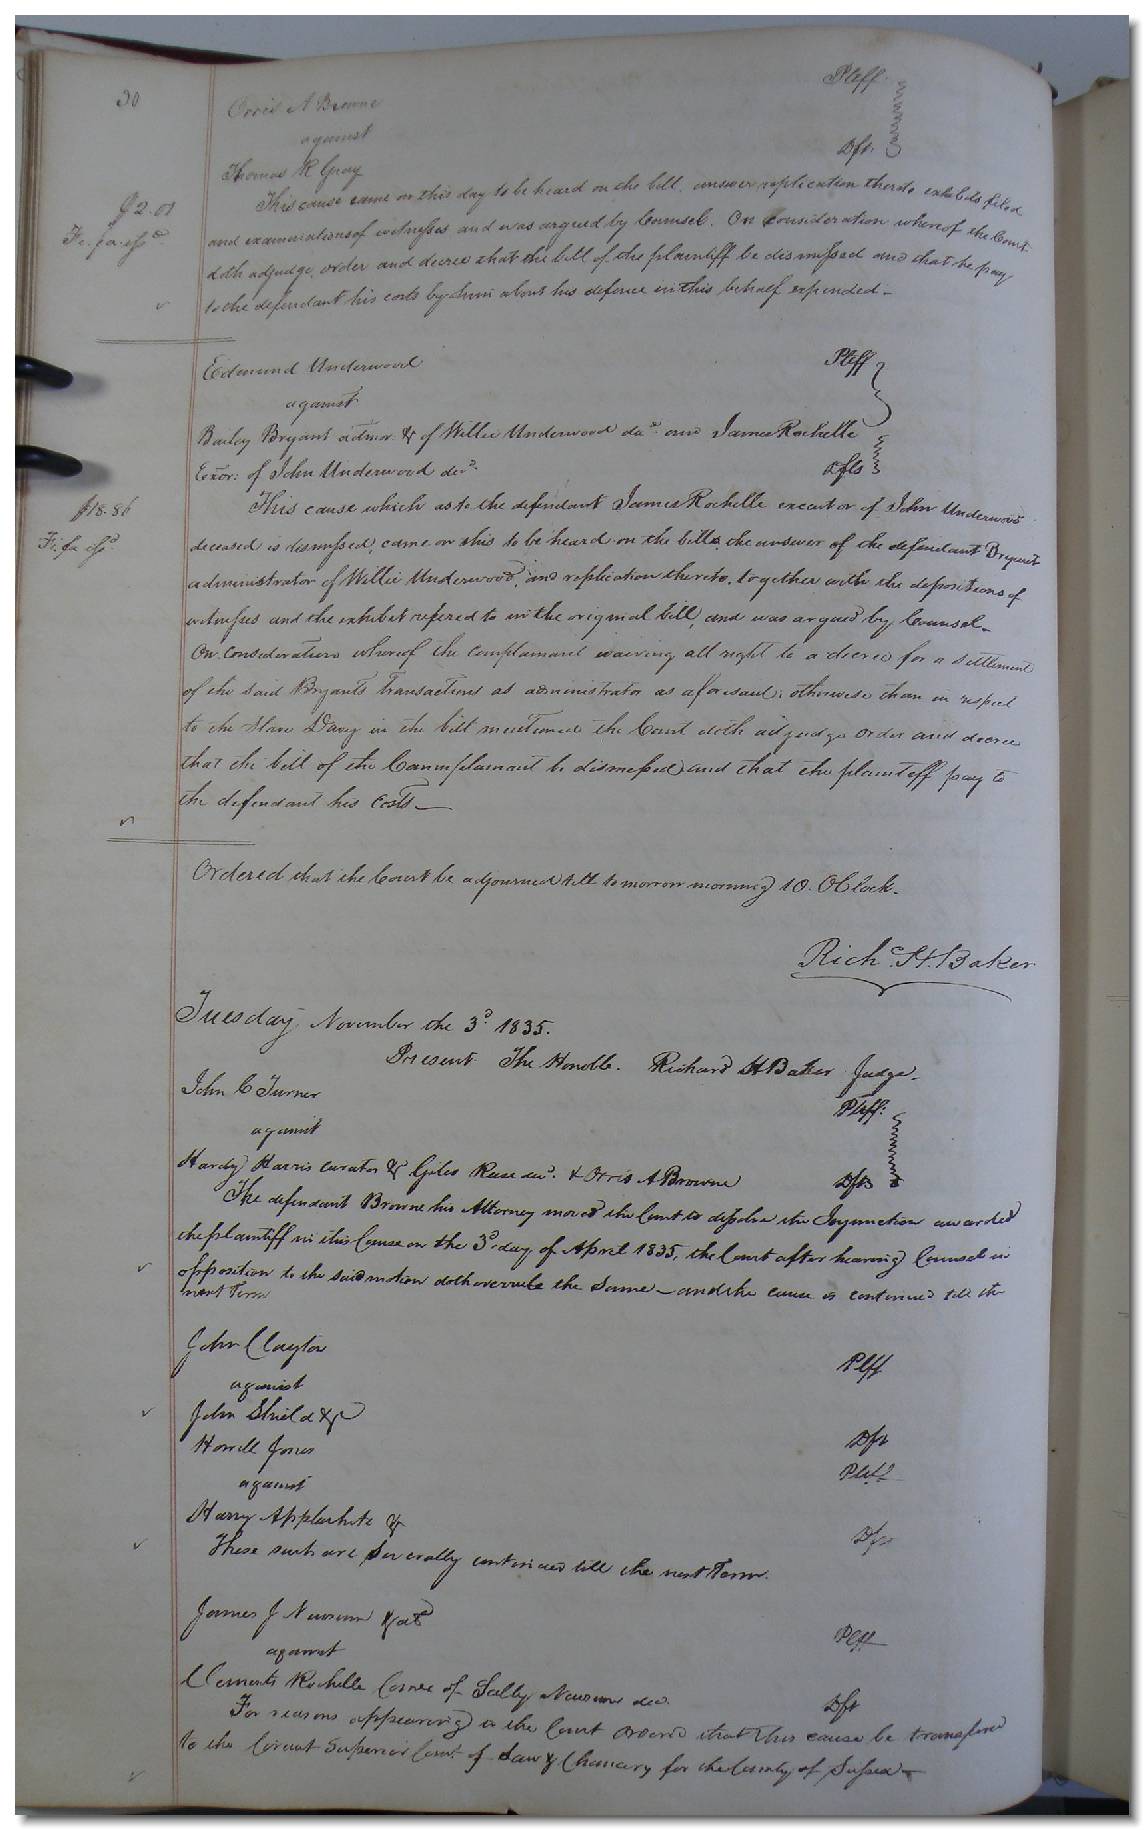 30
Orris A Browne Pltff.
against
Thomas R Gray Dft.
This cause came on this day to be heard on the bill, answer replication thereto exhibits filed
$2.01
and examinations of witnesses and was argued by Counsel. On consideration whereof the Court
Fi. fa. issd.
doth adjudge, order and decree that the bill of the plaintiff be dismissed and that he pay
to the defendant his costs by him about his defence in this behalf expended_
Edmund Underwood Pltff
against
Bailey Bryant admor. &c of Willie Underwood decd. and James Rochelle
Exor: of John Underwood decd. Dfts
$18.86
This cause which as to the defendant James Rochelle executor of John Underwood
Fi. fa issd.
deceased is dismissed, came on this to be heard on the bills, the answer of the defendant Bryant
administrator of Willie Underwood, and replication thereto, together with the depositions of
witnesses and the exhibit refered to in the original bill, and was argued by Counsel_
On consideration whereof the complainant waiving all right to a decree for a settlement
of the said Bryants transactions as administrator as aforesaid, otherwise than in respect
to the slave Davy in the bill mentioned the Court doth adjudge order and decree
that the bill of the Complainant be dismissed and that the plaintiff pay to
the defendant his costs_
Ordered that the Court be adjourned till tomorrow morning 10. OClock_
Richd. H. Baker
Tuesday November the 3d. 1835.
Present The Honble. Richard H Baker Judge_
John C Turner Pltff:
against
Hardy Harris curator &c Giles Reese decd. & Orris A Browne Dfts
The defendant Browne his Attorney moved the Court to dissolve the Injunction awarded
the plaintiff in this Cause on the 3d. day of April 1835, the Court after hearing Counsel in
opposition to the said motion doth overrule the same_ and the cause is continued till the
next Term
John Clayton Pltff
against
John Shield &c
Dft
Howell Jones Pltff
against
Harry Applewhite &c Dft
These suits are severally continued till the next Term.
James J Newsum &als Pltff
against
Clements Rochelle Comee of Sally Newsum decd. Dft
For reasons appearing to the Court ordered that this cause be transferd
to the Circuit Superior Court of Law & Chancery for the County of Sussex_